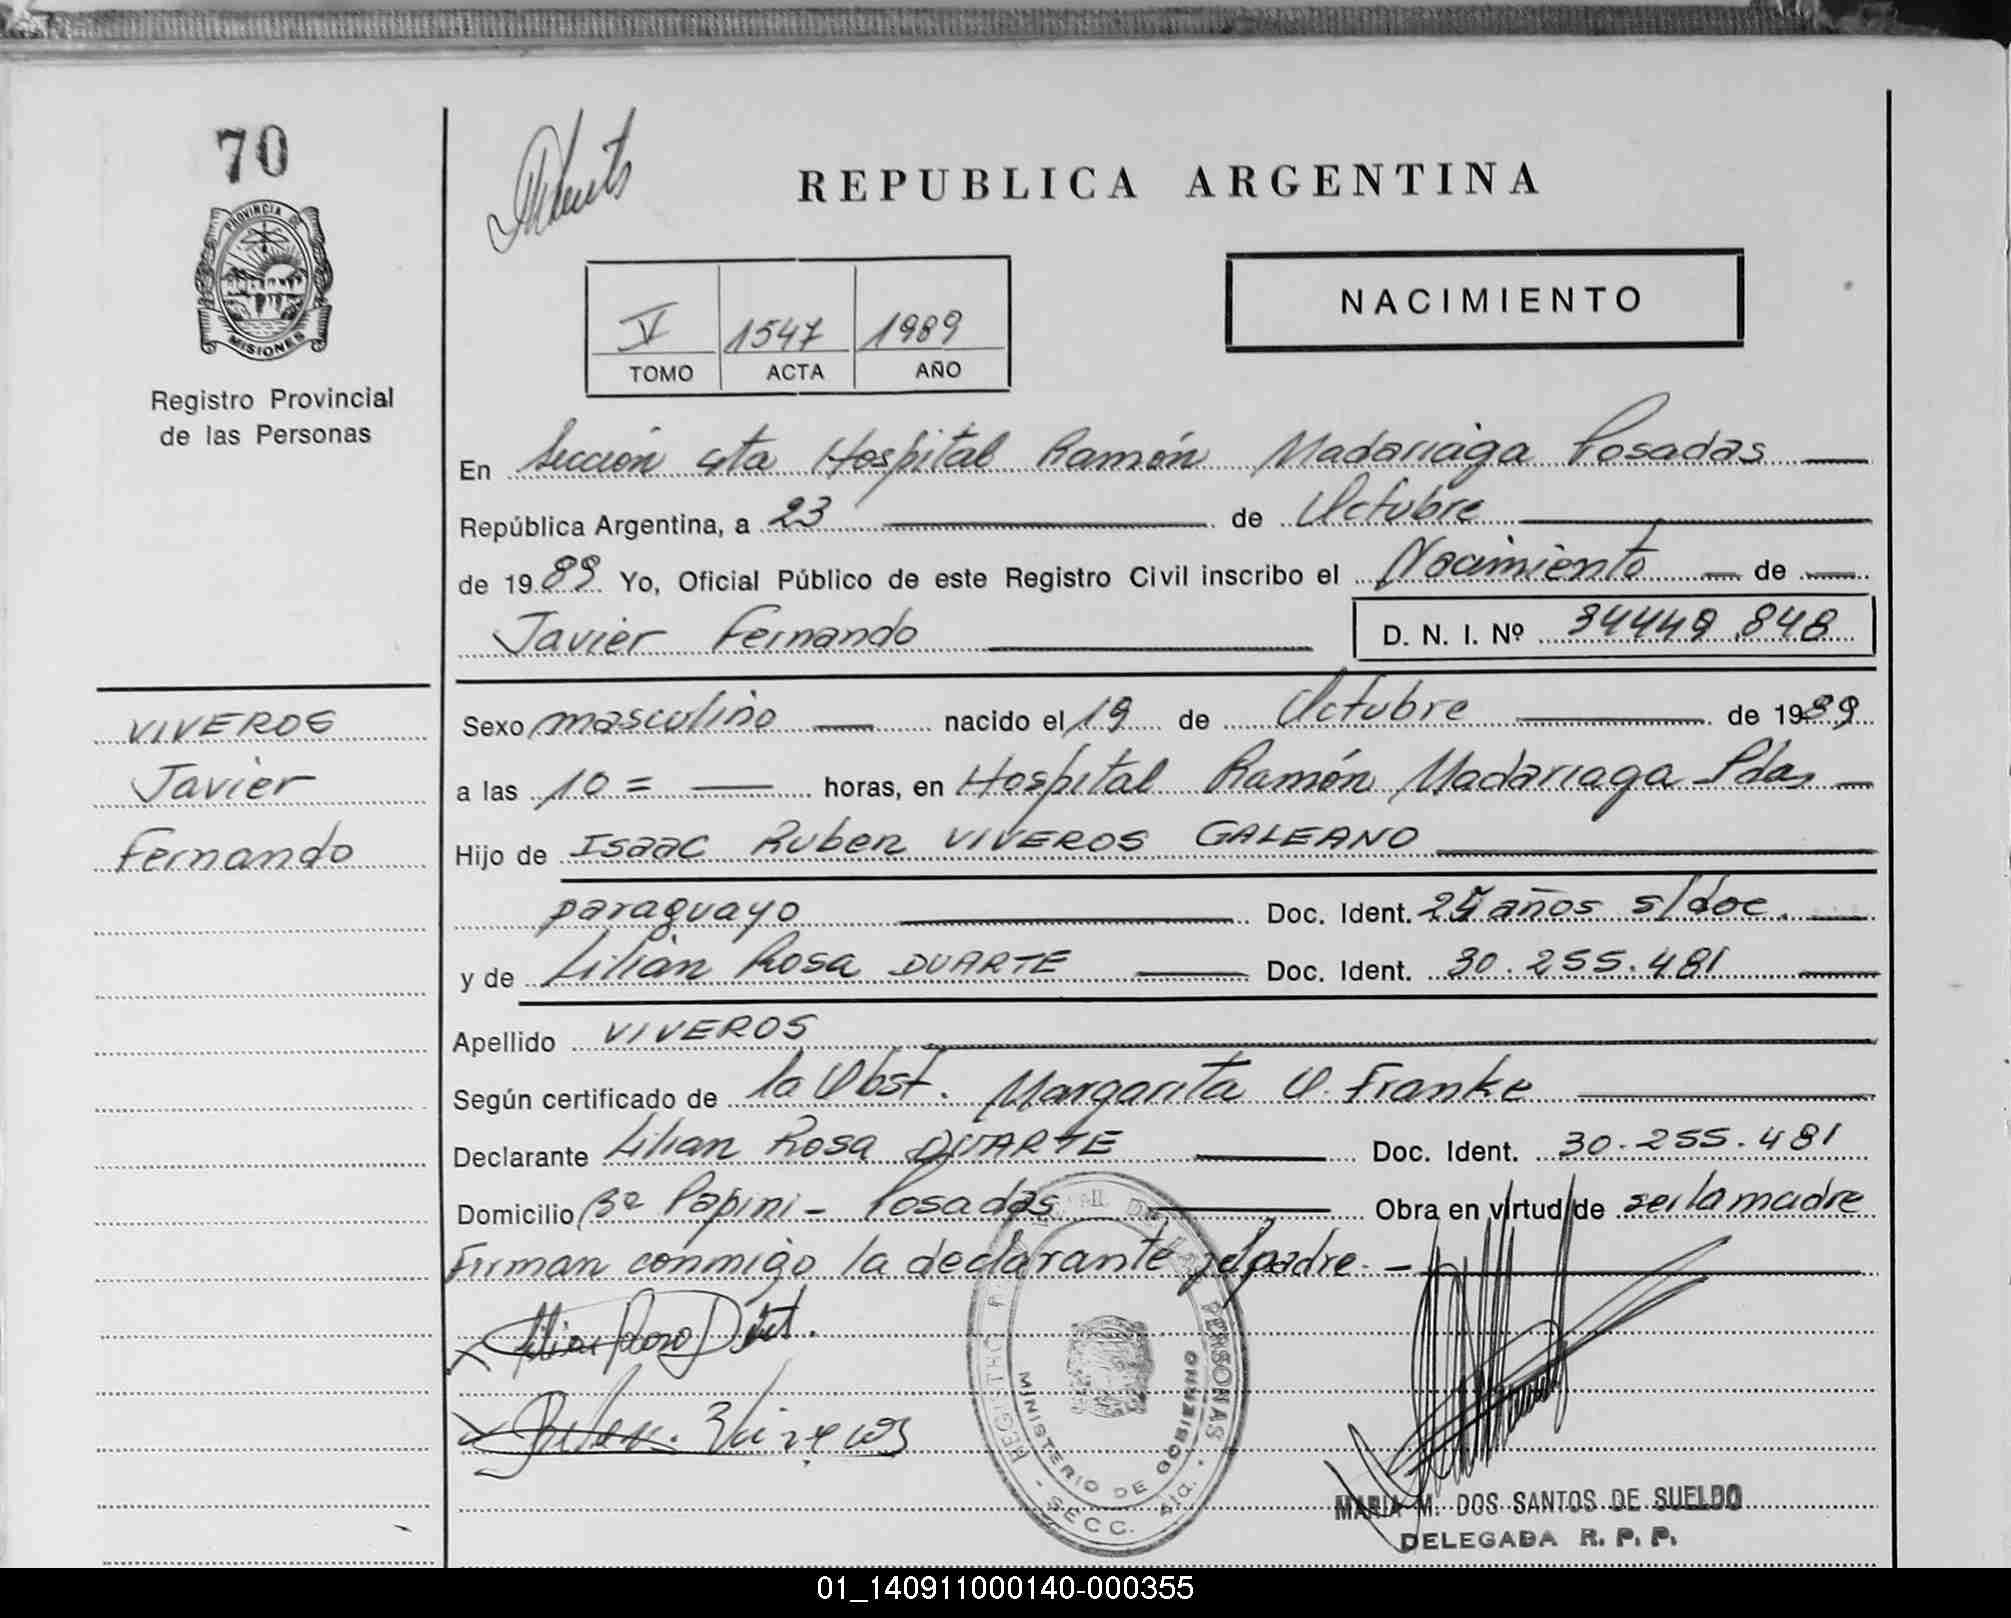 70
PROVINCIA DE
MISIONES
Registro Provincial
de las Personas
REPUBLICA ARGENTINA
V 1547 1989
TOMO ACTA AÑO
NACIMIENTO
En Sección 4ta Hospital Ramón Madariaga Posadas
República Argentina, a 23 de Octubre
de 1989 Yo, Oficial Público de este Registro Civil inscribo el Nacimiento de
Javier Fernando D. N. I. Nº 34449.848
VIVEROS
Javier
Fernando
Sexo masculino nacido el 19 de Octubre de 1989
a las 10 = horas, en Hospital Ramón Madariaga Pdas
Hijo de Isaac Ruben VIVEROS GALEANO
paraguayo Doc. Ident. años s/doc.
y de Lilian Rosa DUARTE Doc. Ident. 30.255.481
Apellido VIVEROS
Según certificado de la Obst. Margarita O. Franke
Declarante Lilian Rosa DUARTE Doc. Ident. 30.255.481
Domicilio Bº Papini - Posadas Obra en virtud de ser la madre
Firman conmigo la declarante y el padre. -
REGISTRO PROVINCIAL DE LAS PERSONAS
MINISTERIO DE GOBIERNO
- SECC. 4ta. -
MARIA M. DOS SANTOS DE SUELDO
DELEGADA R. P. P.
01_140911000140-000355